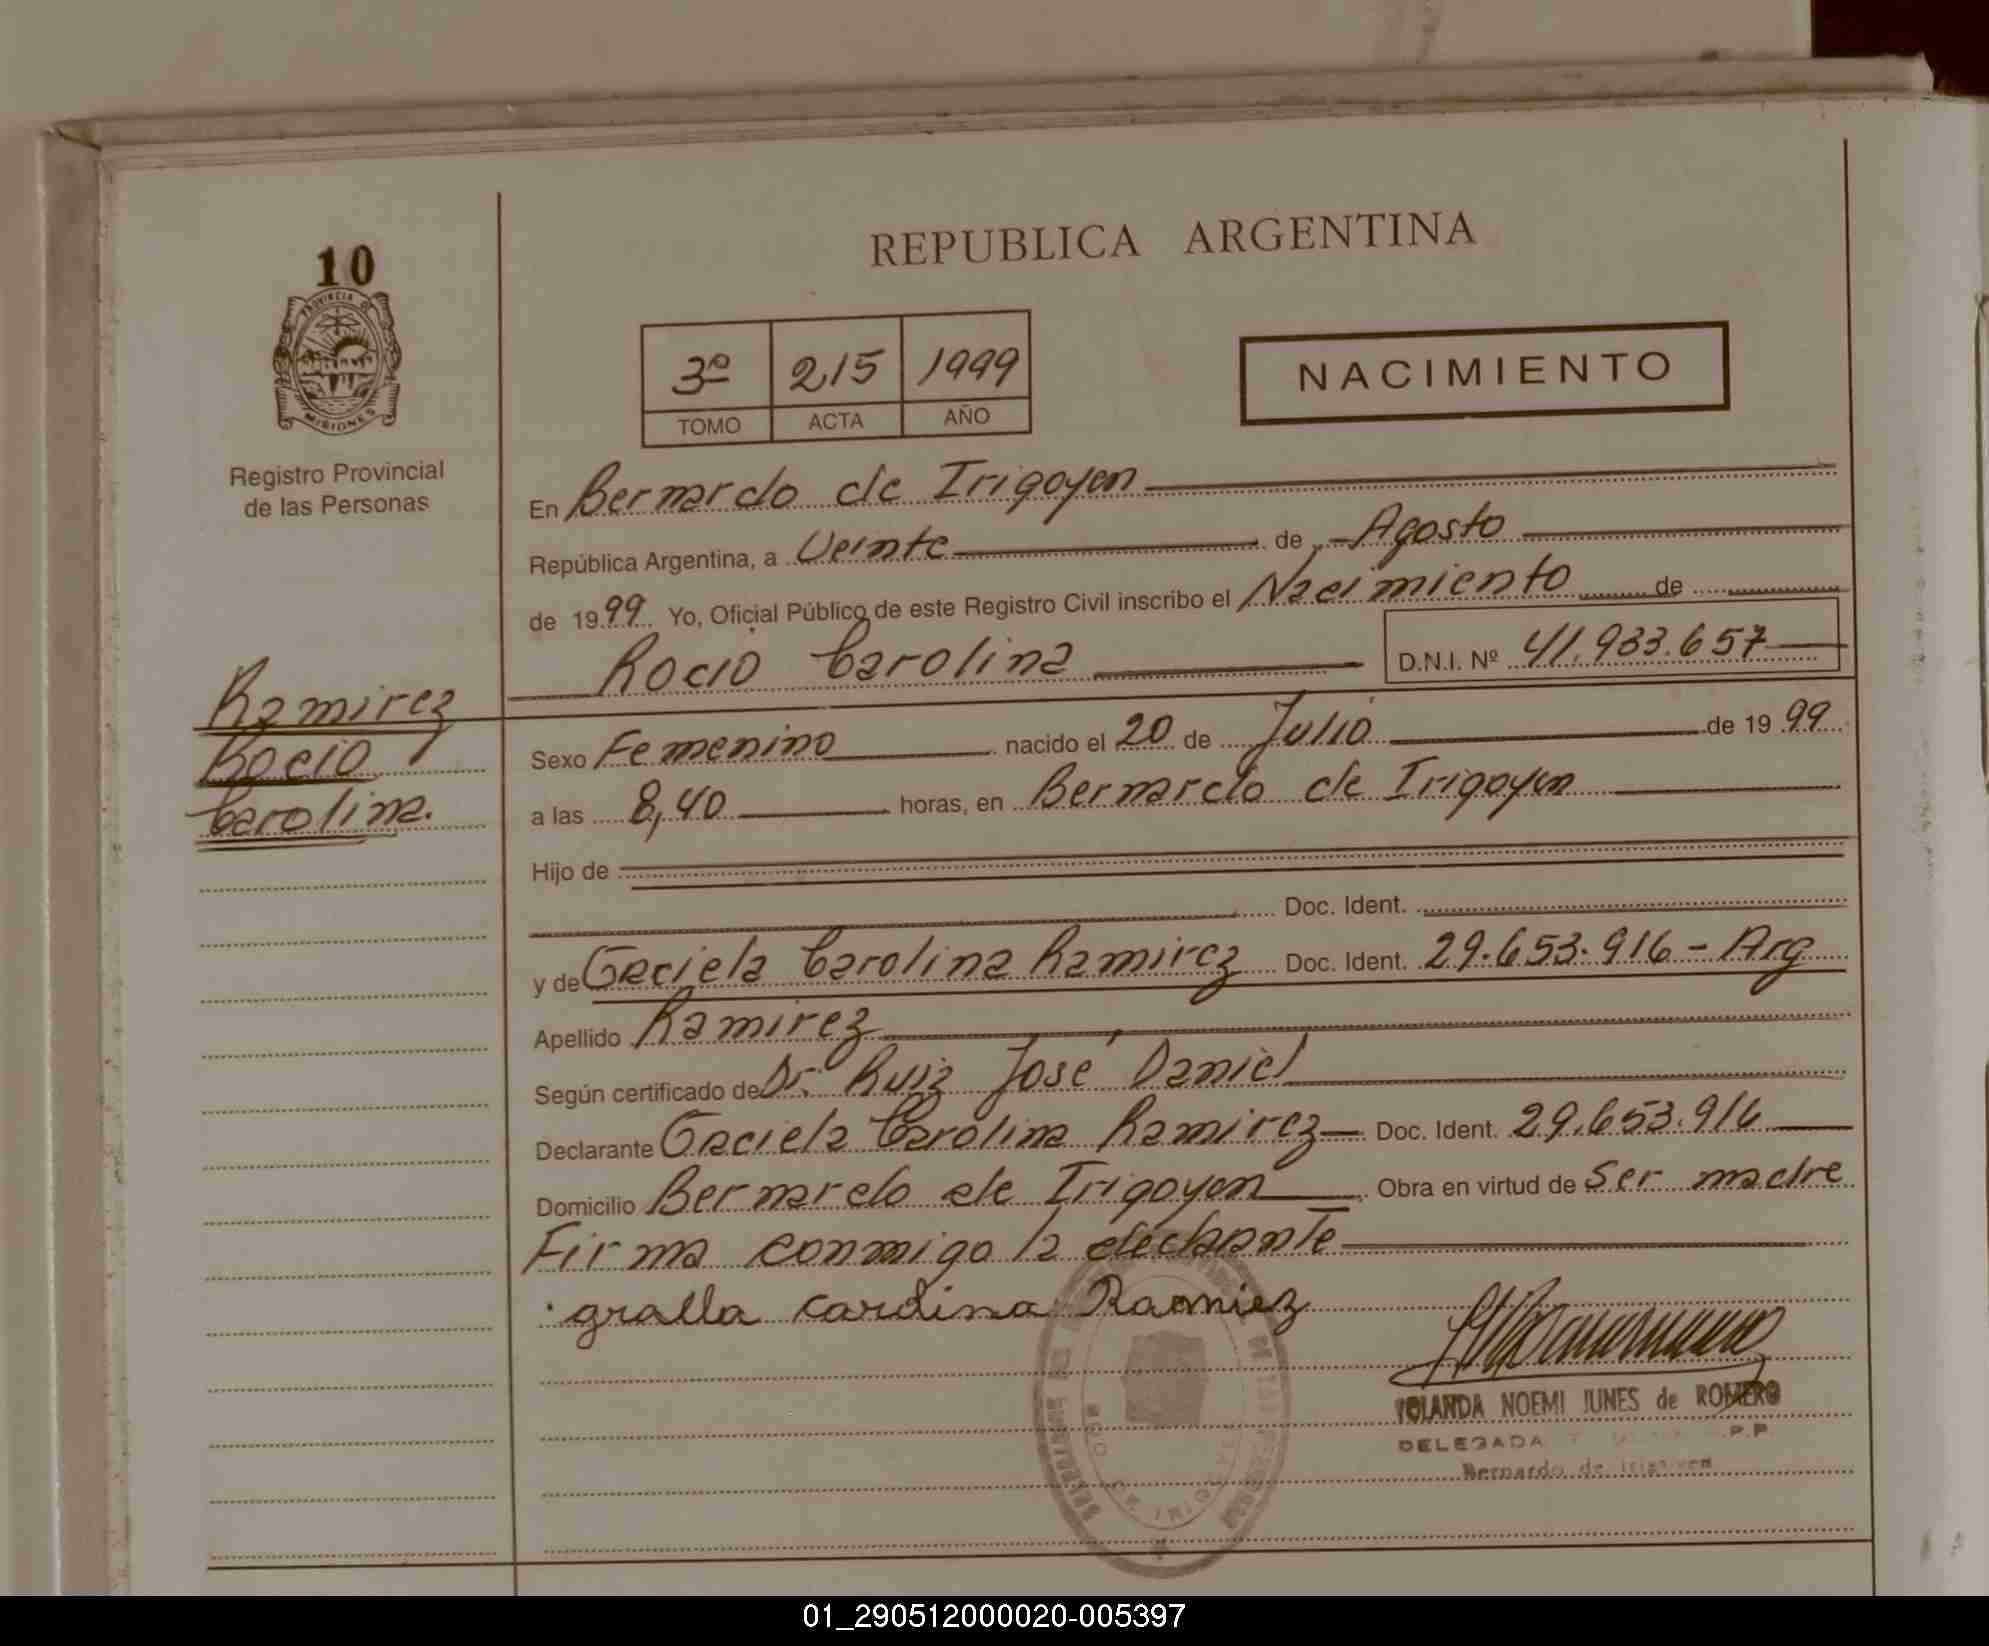 REPUBLICA ARGENTINA
10
PROVINCIA DE
MISIONES
Registro Provincial
de las Personas
3º 215 1999
TOMO ACTA AÑO
NACIMIENTO
En Bernardo de Irigoyen
República Argentina, a Veinte de Agosto
de 1999 Yo, Oficial Público de este Registro Civil inscribo el Nacimiento de
Rocio Carolina D.N.I. Nº 41.933.657
Ramirez
Rocio
Carolina.
Sexo Femenino nacido el 20 de Julio de 1999
a las 8,40 horas, en Bernardo de Irigoyen
Hijo de
Doc. Ident.
y de Graciela Carolina Ramirez Doc. Ident. 29.653.916 - Arg
Apellido Ramirez
Según certificado de Dr. Ruiz José Daniel
Declarante Graciela Carolina Ramirez Doc. Ident. 29.653.916
Domicilio Bernardo de Irigoyen Obra en virtud de Ser madre
Firma conmigo la declarante
Carolina Ramiez
YOLANDA NOEMI JUNES de ROMERO
DELEGADA P.P
Bernardo de
01_290512000020-005397